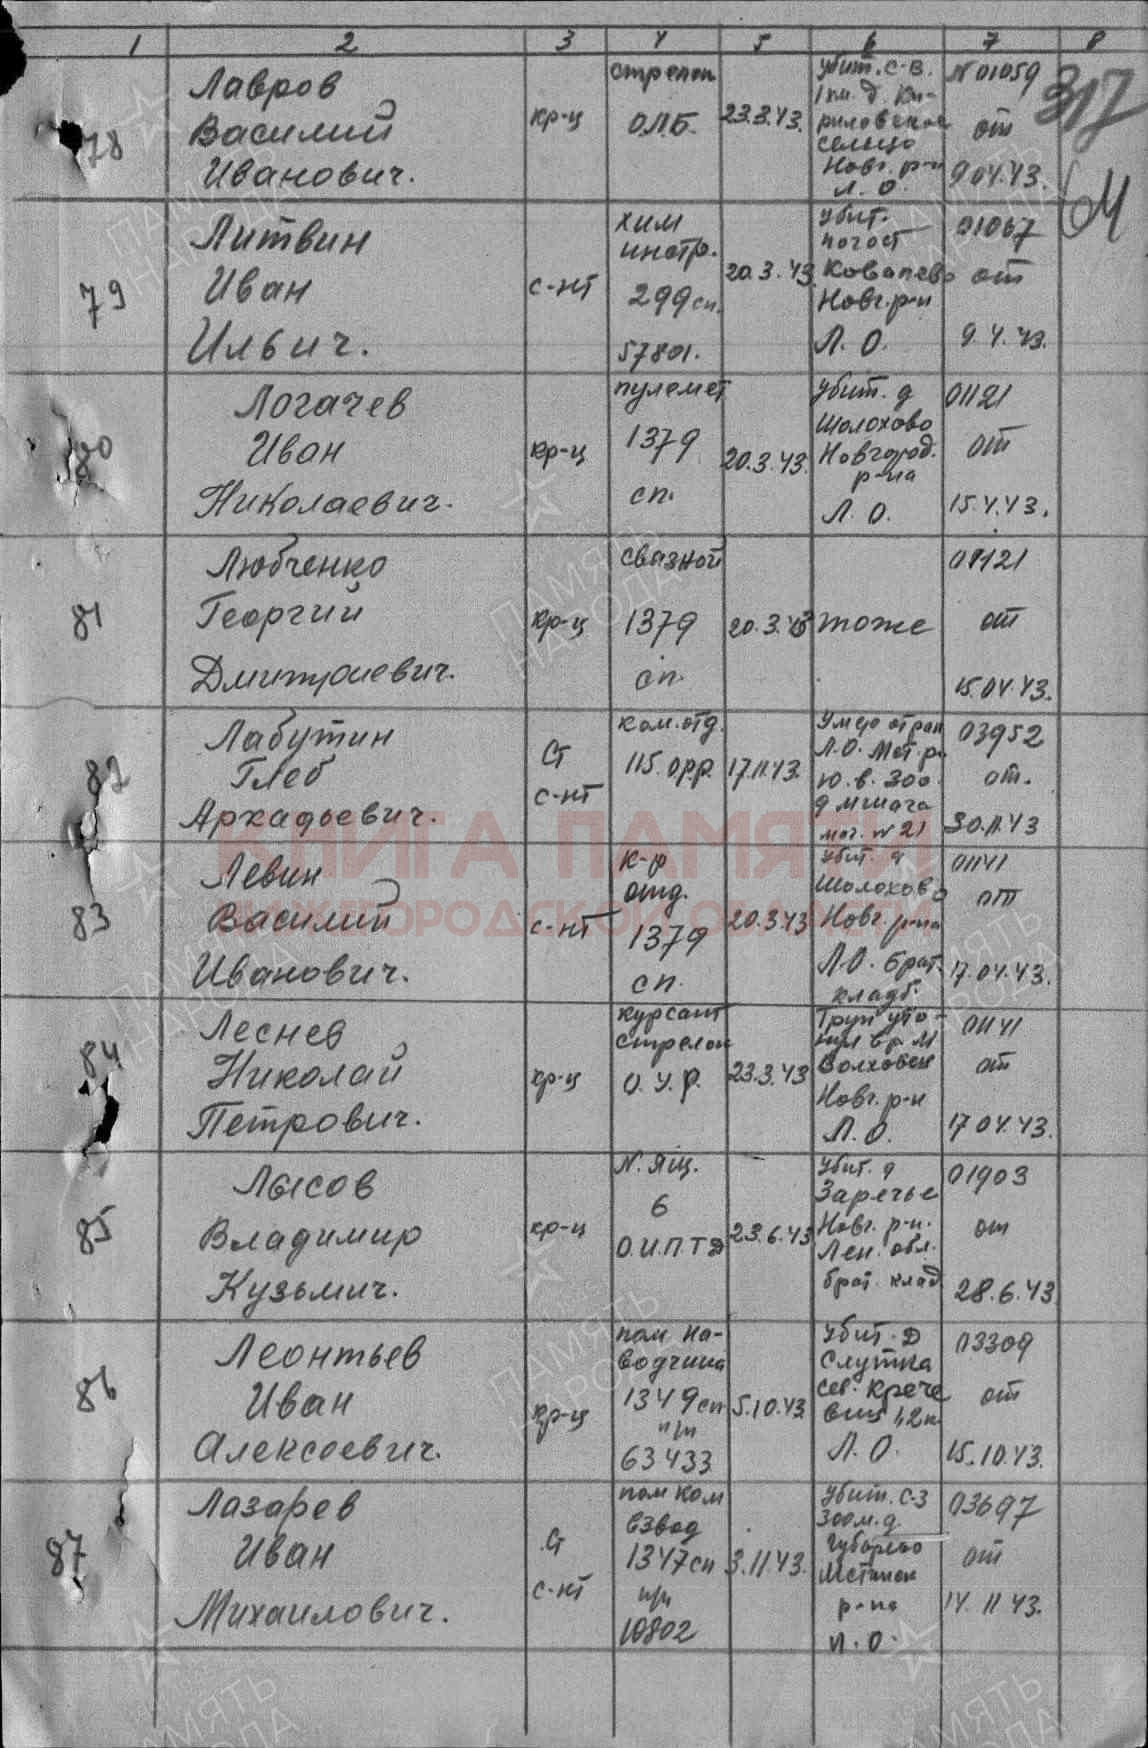 1 2 3 4 5 6 7 8
317
64
78
Лавров
Василий
Иванович.
кр-ц
стрелок
О.Л.Б.
23.3.43.
убит. С-В.
1 км. д. Ки-
риловское
сельцо
Новг. р-н
Л. О.
N 01059
от
9.04.43.
79
Литвин
Иван
Ильич.
с-нт
хим
инстр.
299 сп.
57801.
20.3.43.
убит.
погост
Ковалево
Новг. р-н
Л. О.
01067
от
9.4.43.
80
Логачев
Иван
Николаевич.
кр-ц
пулемет
1379
сп.
20.3.43.
убит. д
Шолохово
Новгород.
р-на
Л. О.
01121
от
15.4.43.
81
Любченко
Георгий
Дмитриевич.
кр-ц
связной
1379
сп.
20.3.43
тоже
01121
от
15.04.43.
82
Лабутин
Глеб
Аркадьевич.
Ст
с-нт
ком. отд.
115. О.Р.Р.
17.11.43.
Л.О. Мст. р-
ю. в. 300.
мог. № 21
03952
от.
30.11.43
83
Левин
Василий
Иванович.
с-нт
к-р
отд.
1379
сп.
20.3.43
убит. д
Шолохово
Новг. р-на
Л.О. брат.
кладб.
01141
от
17.04.43.
84
Леснев
Николай
Петрович.
кр-ц
курсант
стрелок
О. У. Р.
23.3.43
Труп уто-
нул в р. М
Волховец
Новг. р-н
Л. О.
01141
от
17.04.43.
85
Лысов
Владимир
Кузьмич.
кр-ц
N. Ящ.
6
О.И.П.Т.Д
23.6.43
убит. д
Заречье
Новг. р-н.
Лен. обл.
брат. клад
01903
от
28.6.43
86
Леонтьев
Иван
Алексеевич.
кр-ц
пом. на-
водчика
1349 сп
п/п
63433
5.10.43
убит. Д
Слутка
сев. Крече
виц 1,2 к
Л. О.
03309
от
15.10.43.
87
Лазарев
Иван
Михайлович.
Ст
с-нт
пом ком
взвод
1347 сп
п/п
10802
3.11.43.
убит. С-З
300 м. д.
Губарево
Мстинск
р-на
Л. О.
03697
от
14.11.43.
КНИГА ПАМЯТИ
НИЖЕГОРОДСКОЙ ОБЛАСТИ
ПАМЯТЬ
НАРОДА